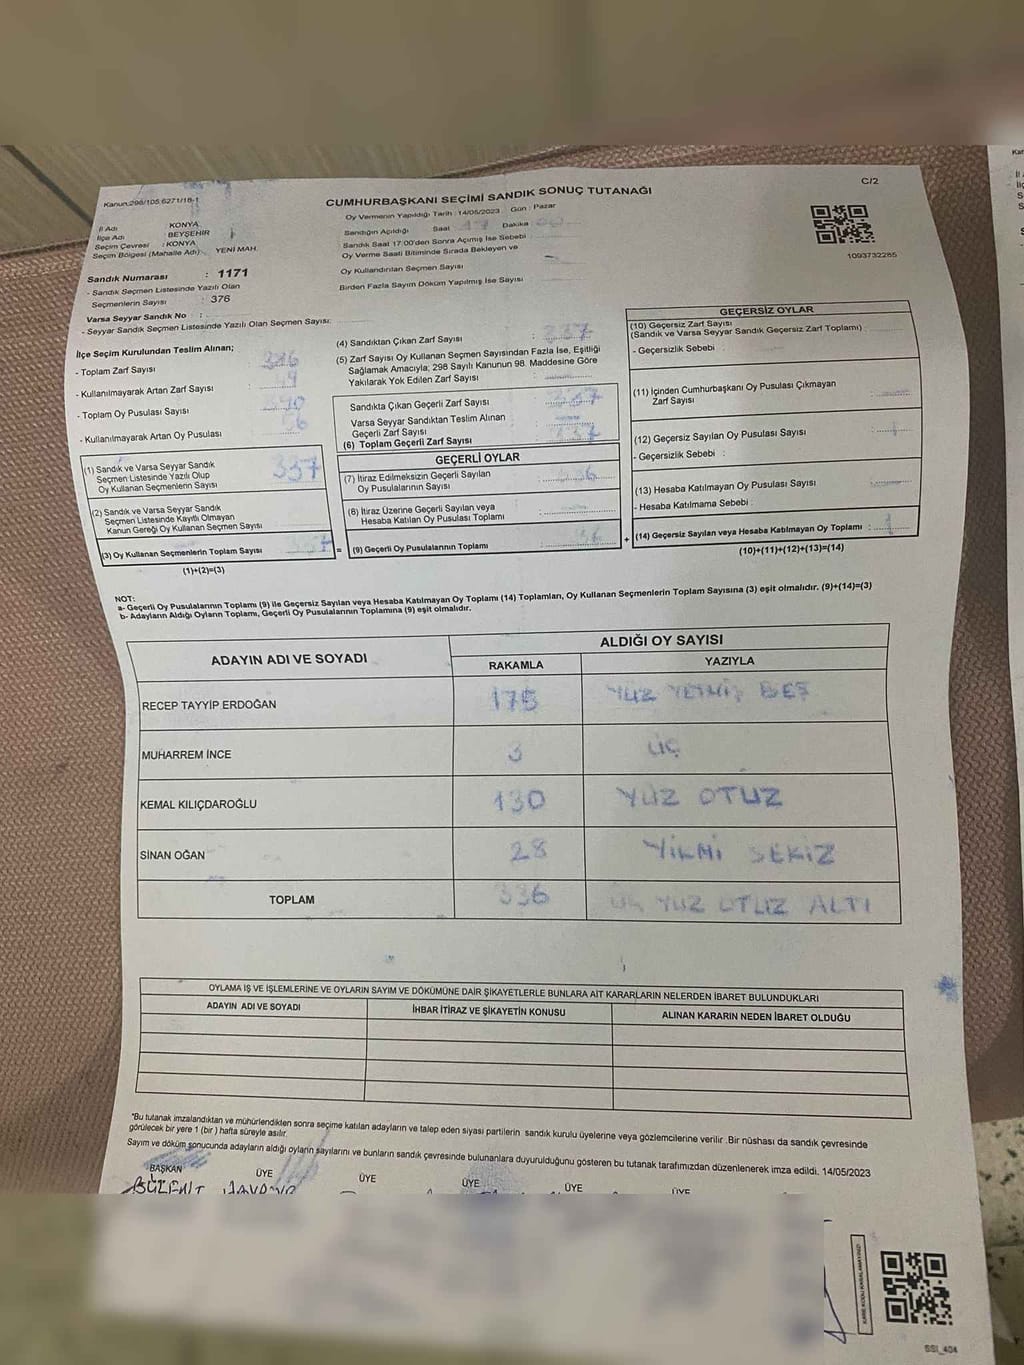 C/2
Kanun:298/105,6271/18-1
CUMHURBAŞKANI SEÇİMİ SANDIK SONUÇ TUTANAĞI
Oy Vermenin Yapıldığı Tarih : 14/05/2023 Gün : Pazar
1093732285
İl Adı : KONYA
İlçe Adı : BEYŞEHİR
Seçim Çevresi : KONYA
Seçim Bölgesi (Mahalle Adı) : YENİ MAH.
Sandığın Açıldığı Saat 17 Dakika 00
Sandık Saat 17:00'den Sonra Açımış İse Sebebi
Oy Verme Saati Bitiminde Sırada Bekleyen ve
Oy Kullandırılan Seçmen Sayısı
Birden Fazla Sayım Döküm Yapılmış İse Sayısı
Sandık Numarası : 1171
- Sandık Seçmen Listesinde Yazılı Olan
Seçmenlerin Sayısı : 376
Varsa Seyyar Sandık No :
- Seyyar Sandık Seçmen Listesinde Yazılı Olan Seçmen Sayısı:
İlçe Seçim Kurulundan Teslim Alınan;
- Toplam Zarf Sayısı :
- Kullanılmayarak Artan Zarf Sayısı :
- Toplam Oy Pusulası Sayısı :
- Kullanılmayarak Artan Oy Pusulası :
(1) Sandık ve Varsa Seyyar Sandık
Seçmen Listesinde Yazılı Olup
Oy Kullanan Seçmenlerin Sayısı 337
(2) Sandık ve Varsa Seyyar Sandık
Seçmen Listesinde Kayıtlı Olmayan
Kanun Gereği Oy Kullanan Seçmen Sayısı
(3) Oy Kullanan Seçmenlerin Toplam Sayısı 337 =
(1)+(2)=(3)
(4) Sandıktan Çıkan Zarf Sayısı : 337
(5) Zarf Sayısı Oy Kullanan Seçmen Sayısından Fazla İse, Eşitliği
Sağlamak Amacıyla; 298 Sayılı Kanunun 98. Maddesine Göre
Yakılarak Yok Edilen Zarf Sayısı :
Sandıkta Çıkan Geçerli Zarf Sayısı : 337
Varsa Seyyar Sandıktan Teslim Alınan
Geçerli Zarf Sayısı :
(6) Toplam Geçerli Zarf Sayısı : 337
GEÇERLİ OYLAR
(7) İtiraz Edilmeksizin Geçerli Sayılan
Oy Pusulalarının Sayısı : 336
(8) İtiraz Üzerine Geçerli Sayılan veya
Hesaba Katılan Oy Pusulası Toplamı :
(9) Geçerli Oy Pusulalarının Toplamı : 336 +
GEÇERSİZ OYLAR
(10) Geçersiz Zarf Sayısı
(Sandık ve Varsa Seyyar Sandık Geçersiz Zarf Toplamı) :
- Geçersizlik Sebebi :
(11) İçinden Cumhurbaşkanı Oy Pusulası Çıkmayan
Zarf Sayısı :
(12) Geçersiz Sayılan Oy Pusulası Sayısı : 1
- Geçersizlik Sebebi :
(13) Hesaba Katılmayan Oy Pusulası Sayısı :
- Hesaba Katılmama Sebebi :
(14) Geçersiz Sayılan veya Hesaba Katılmayan Oy Toplamı : 1
(10)+(11)+(12)+(13)=(14)
NOT:
a- Geçerli Oy Pusulalarının Toplamı (9) ile Geçersiz Sayılan veya Hesaba Katılmayan Oy Toplamı (14) Toplamları, Oy Kullanan Seçmenlerin Toplam Sayısına (3) eşit olmalıdır. (9)+(14)=(3)
b- Adayların Aldığı Oyların Toplamı, Geçerli Oy Pusulalarının Toplamına (9) eşit olmalıdır.
ADAYIN ADI VE SOYADI ALDIĞI OY SAYISI
RAKAMLA YAZIYLA
RECEP TAYYİP ERDOĞAN 175 YÜZ YETMİŞ BEŞ
MUHARREM İNCE 3 ÜÇ
KEMAL KILIÇDAROĞLU 130 YÜZ OTUZ
SİNAN OĞAN 28 YİRMİ SEKİZ
TOPLAM 336 ÜÇ YÜZ OTUZ ALTI
OYLAMA İŞ VE İŞLEMLERİNE VE OYLARIN SAYIM VE DÖKÜMÜNE DAİR ŞİKAYETLERLE BUNLARA AİT KARARLARIN NELERDEN İBARET BULUNDUKLARI
ADAYIN ADI VE SOYADI İHBAR İTİRAZ VE ŞİKAYETİN KONUSU ALINAN KARARIN NEDEN İBARET OLDUĞU
*Bu tutanak imzalandıktan ve mühürlendikten sonra seçime katılan adayların ve talep eden siyasi partilerin sandık kurulu üyelerine veya gözlemcilerine verilir .Bir nüshası da sandık çevresinde
görülecek bir yere 1 (bir ) hafta süreyle asılır.
Sayım ve döküm sonucunda adayların aldığı oyların sayılarını ve bunların sandık çevresinde bulunanlara duyurulduğunu gösteren bu tutanak tarafımızdan düzenlenerek imza edildi. 14/05/2023
BAŞKAN ÜYE ÜYE ÜYE ÜYE ÜYE
BÜLENT
KARE KODU KARALAMAYINIZ!
SSI_404